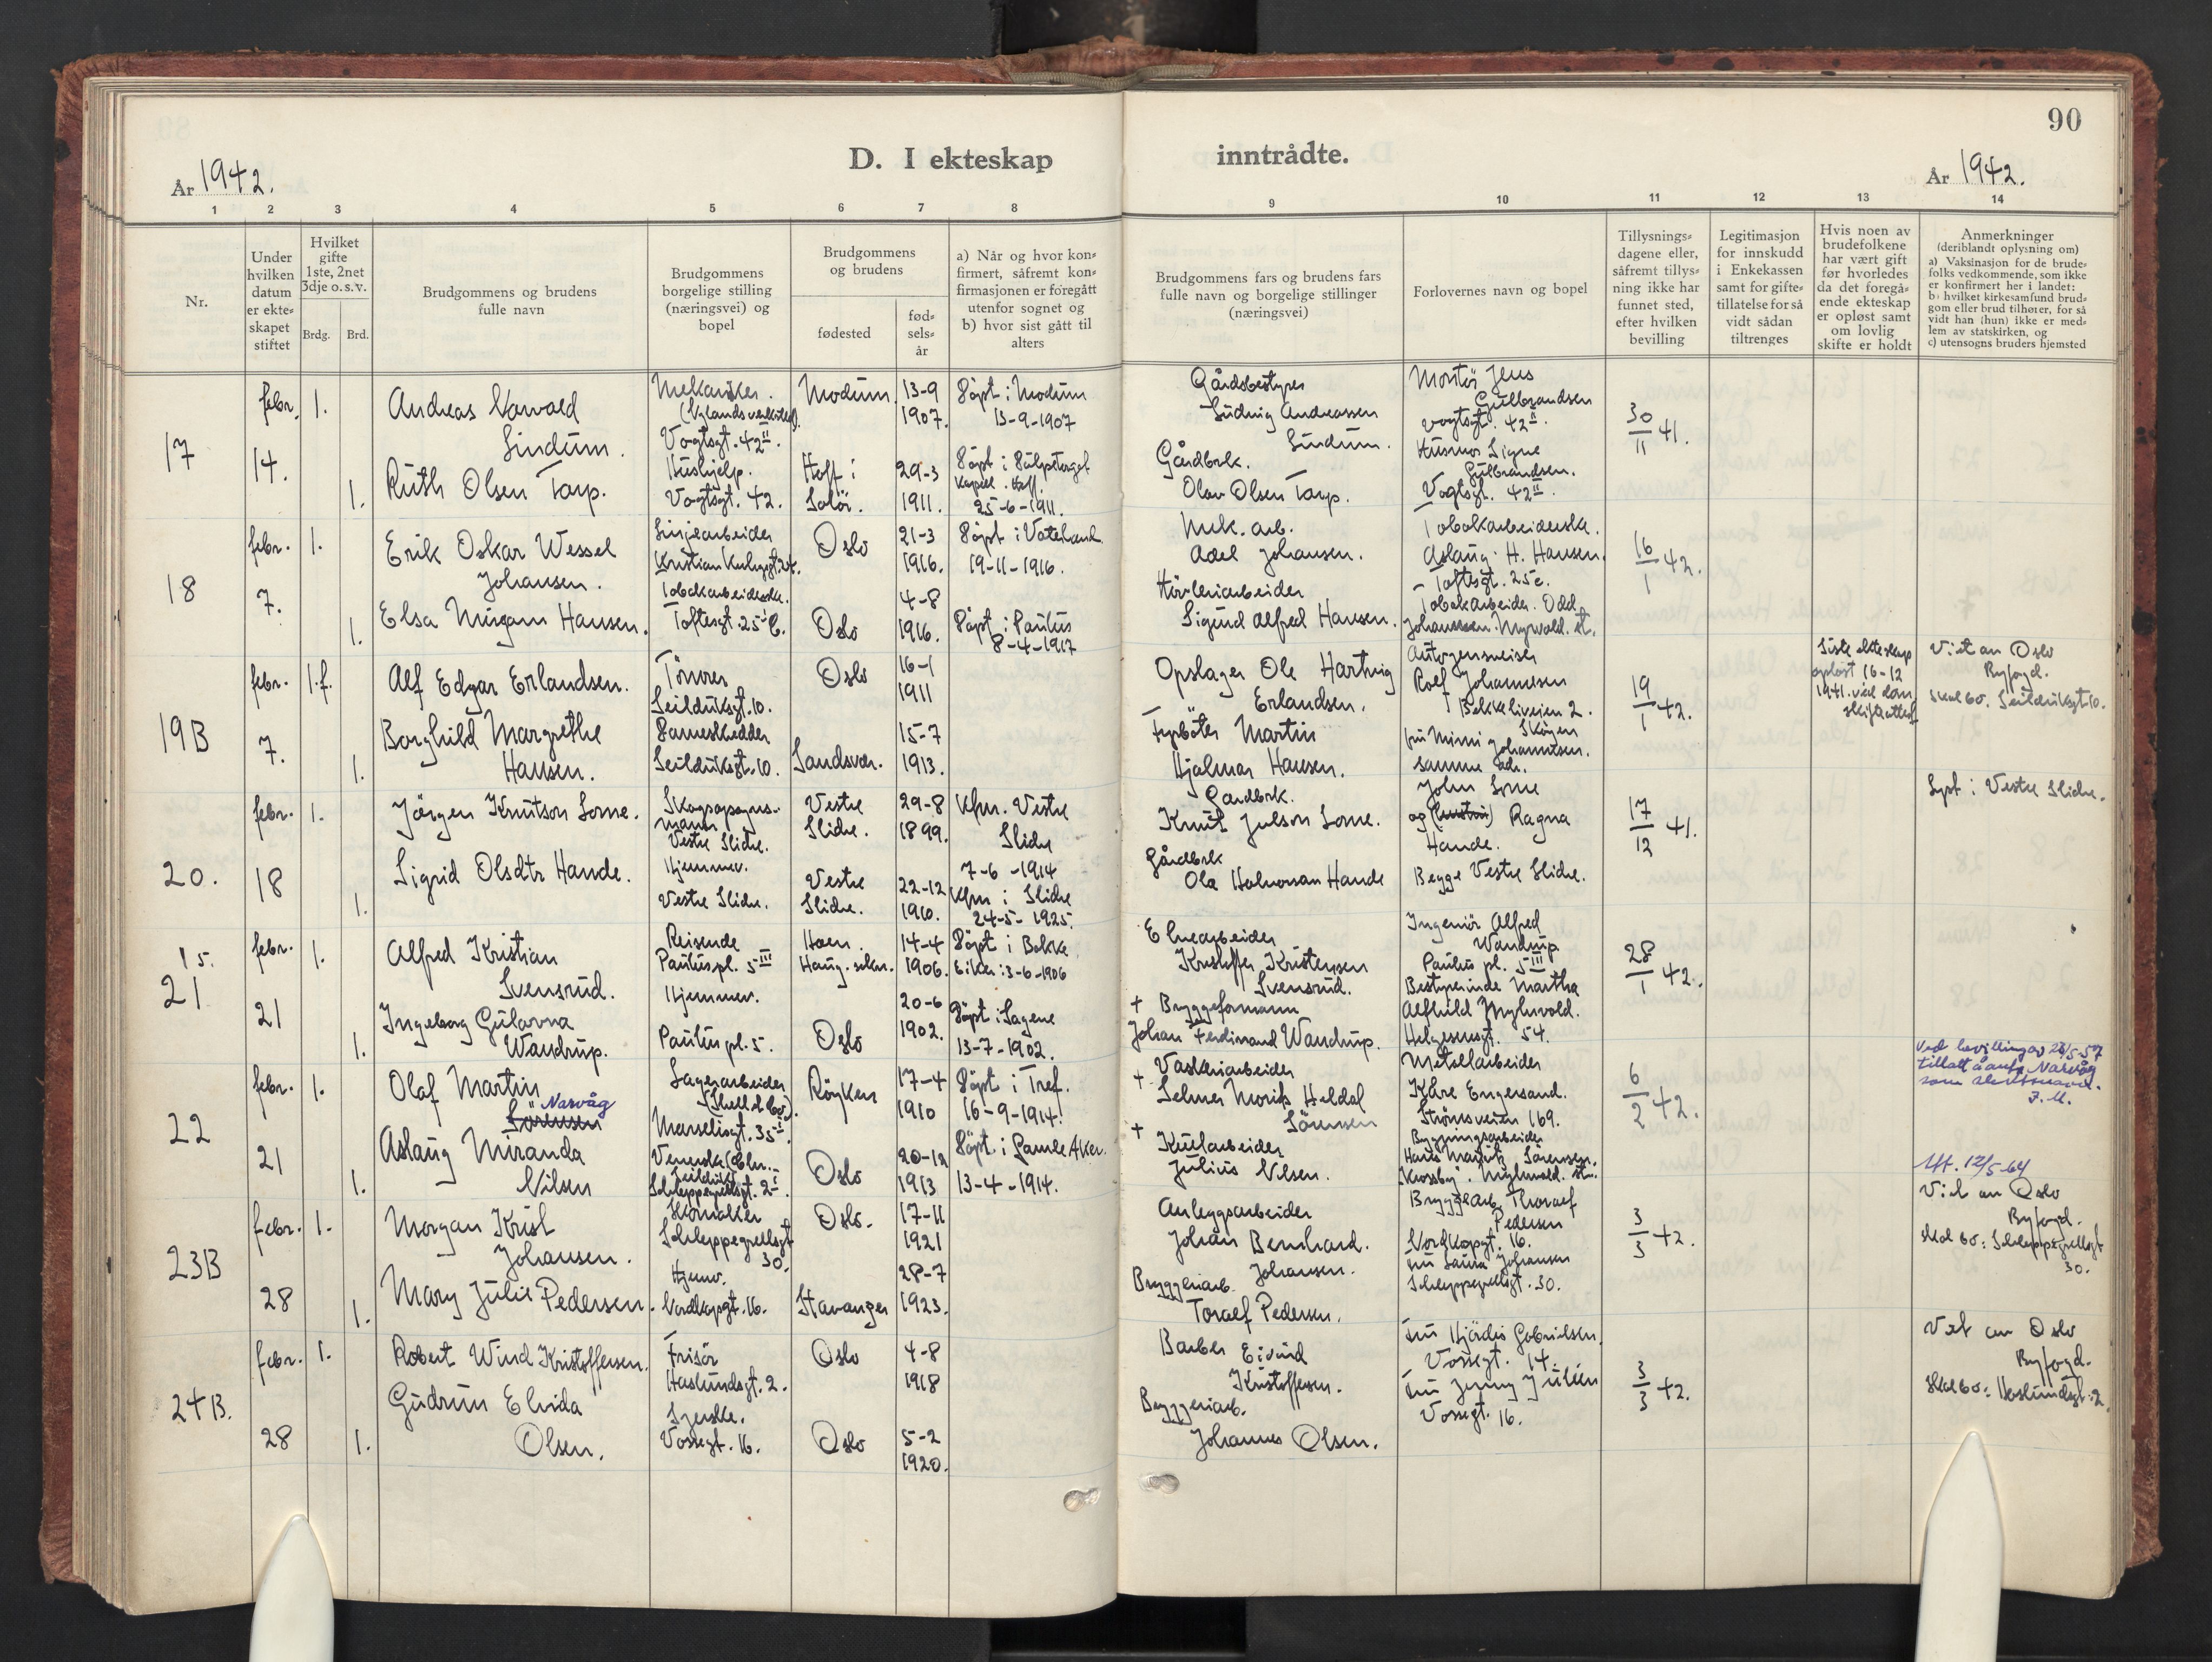 90
D. I ekteskap
inntrådte.
År 1942.
År 1942.
1 2 3 4 5 6 7 8 9 10 11 12 13 14
Nr.
Under
hvilken
datum
er ekte-
skapet
stiftet
Hvilket
gifte
1ste, 2net
3dje o. s. v.
Brdg.
Brd.
Brudgommens og brudens
fulle navn
Brudgommens
borgelige stilling
(næringsvei) og
bopel
Brudgommens
og brudens
fødested
fød-
sels-
år
a) Når og hvor kon-
firmert, såfremt kon-
firmasjonen er foregått
utenfor sognet og
b) hvor sist gått til
alters
Brudgommens fars og brudens fars
fulle navn og borgelige stillinger
(næringsvei)
Forlovernes navn og bopel
Tillysnings-
dagene eller,
såfremt tillys-
ning ikke har
funnet sted,
efter hvilken
bevilling
Legitimasjon
for innskudd
i Enkekassen
samt for gifte-
tillatelse for så
vidt sådan
tiltrenges
Hvis noen av
brudefolkene
har vært gift
før hvorledes
da det foregå-
ende ekteskap
er opløst samt
om lovlig
skifte er holdt
Anmerkninger
(deriblandt oplysning om)
a) Vaksinasjon for de brude-
folks vedkommende, som ikke
er konfirmert her i landet:
b) hvilket kirkesamfund brud-
gom eller brud tilhører, for så
vidt han (hun) ikke er med-
lem av statskirken, og
c) utensogns bruders hjemsted
17
febr.
14.
1.
Andreas Narvald
Lindum.
Mekaniker.
(Nylands verksted).
Vogtsgt. 42 II.
Modum.
13-9
1907.
Døpt i Modum
13-9-1907
Gårdsbestyrer
Ludvig Andreassen
Lindum.
Montør Jens
Gulbrandsen
Vogtsgt. 42 II.
30/11 41.
1.
Ruth Olsen Tarp.
Hushjelp.
Vogtsgt. 42.
Hoff i
Solør.
29-3
1911.
Kapell. Hoff.
25-6-1911.
Gårdbrk.
Olav Olsen Tarp.
Husmor Signe
Gulbrandsen.
Vogtsgt. 42 II.
18
febr.
7.
1.
Erik Oskar Wessel
Johansen.
Linjearbeider
Oslo
21-3
1916.
Døpt i Vaterland
19-11-1916.
Mek. arb.
Adel Johansen.
Tobakarbeiderske.
Aslaug H. Hansen.
Toftesgt. 25c.
16/1 42.
1.
Elsa Mirjam Hansen.
Tobakarbeiderske.
Toftesgt. 25 C.
Oslo
4-8
1916.
Døpt i Paulus
8-4-1917
Høvleriarbeider
Sigurd Alfred Hansen.
Tobakarbeider. Odd
19B
febr.
7.
1.f.
Alf Edgar Erlandsen.
Tømrer
Seilduksgt. 10.
Oslo
16-1
1911
Opslager Ole Hartvig
Erlandsen.
Autogensveiser
Rolf Johannesen
Bekkeliveien 2.
Skøyen
19/1 42.
Siste ekteskap
opløst 16-12
1941. ved dom,
skifteattest
Viet av Oslo
Byfogd.
Skal bo. Seilduksgt. 10.
1.
Borghild Margrethe
Hansen.
Seilduksgt. 10.
Sandsvær.
15-7
1913.
Fyrbøter Martin
Hjalmar Hansen.
fru Mimi Johannesen.
samme adr.
20.
febr.
18
1.
Jørgen Knutson Lome.
Skogopsyns-
mann
Vestre Slidre.
Vestre
Slidre.
29-8
1899.
Kfm. Vestre
Slidre
7-6-1914
Gardbrk.
Knut Julson Lome.
John Lome
og Ragna
Hande.
Begge Vestre Slidre.
17/12 41.
Lyst i Vestre Slidre.
1.
Sigrid Olsdtr Hande.
Hjemmev.
Vestre Slidre.
Vestre
Slidre.
22-12
1910.
Kfm i Slidre
24-5-1925.
Gårdbrk
Ola Halvorson Hande
15.
21
febr.
21
1.
Alfred Kristian
Svensrud.
Reisende
Pauluspl. 5 III
Haug.
14-4
1906.
Døpt i Bakke
Eiker 3-6-1906
Kristoffer Kristensen
Svensrud.
Ingeniør Alfred
Wandrup
Paulus pl. 5 III
28/1 42.
1.
Ingeborg Gularna
Wandrup.
Hjemmev.
Paulus pl. 5.
Oslo
20-6
1902.
Døpt i Sagene
13-7-1902.
+ Bryggeformann
Johan Ferdinand Wandrup.
Bestyrerinde Martha
Alfhild Myhrvold.
Helgesensgt. 54.
22
febr.
21
1.
Olaf Martin
Narvåg
Sørensen
Lagerarbeider
(Shell & Co.).
Marselisgt. 35 I.
Røyken
17-4
1910
Døpt i Tref.
16-9-1914.
Vaskeriarbeider
+ Selmer Morits Heldal
Sørensen
Metallarbeider
Kåre Engersand.
Strømsveien 169.
6/2 42.
Ved bevilling av 28/5-57
tillatt å anta Narvåg
som slektsnavn.
1.
Aslaug Miranda
Nilsen
Schleppegrellsgt. 2 I.
Oslo
20-12
1913
Døpt i Gamle Aker.
13-4-1914.
+ Kullarbeider
Julius Nilsen.
Bygningsarbeider
Hans Martin Sørensen.
Utt. 12/5-64
23B
febr.
28
1.
Morgan Krist
Johansen.
Skomaker
Schleppegrellsgt
30.
Oslo.
17-11
1921
Anleggsarbeider
Johan Bernhard.
Johansen.
Bryggearb. Thoralf
Pedersen
Nordkapgt. 16.
3/3 42.
Viet av Oslo
Byfogd.
skal bo: Schleppegrellsgt
30.
1.
Mary Julie Pedersen.
Hjemv.
Nordkapgt. 16.
Stavanger
28-7
1923.
Bryggeriarb.
Toralf Pedersen.
fru Laura Johansen
Schleppegrellsgt. 30.
24B.
febr.
28
1.
Robert Wind Kristoffersen.
Frisør
Haslundsgt. 2.
Oslo
4-8
1918
Barber Eivind
Kristoffersen.
Fru Hjørdis Gabrielsen.
Vossegt. 14.
3/3 42.
Viet av Oslo
Byfogd.
Skal bo: Haslundsgt. 2.
1.
Gudrun Elvida
Olsen.
Syerske.
Vossegt. 16.
Oslo
5-2
1920.
Bryggeriarb.
Johannes Olsen.
Fru Jenny Julien
Vossegt. 16.